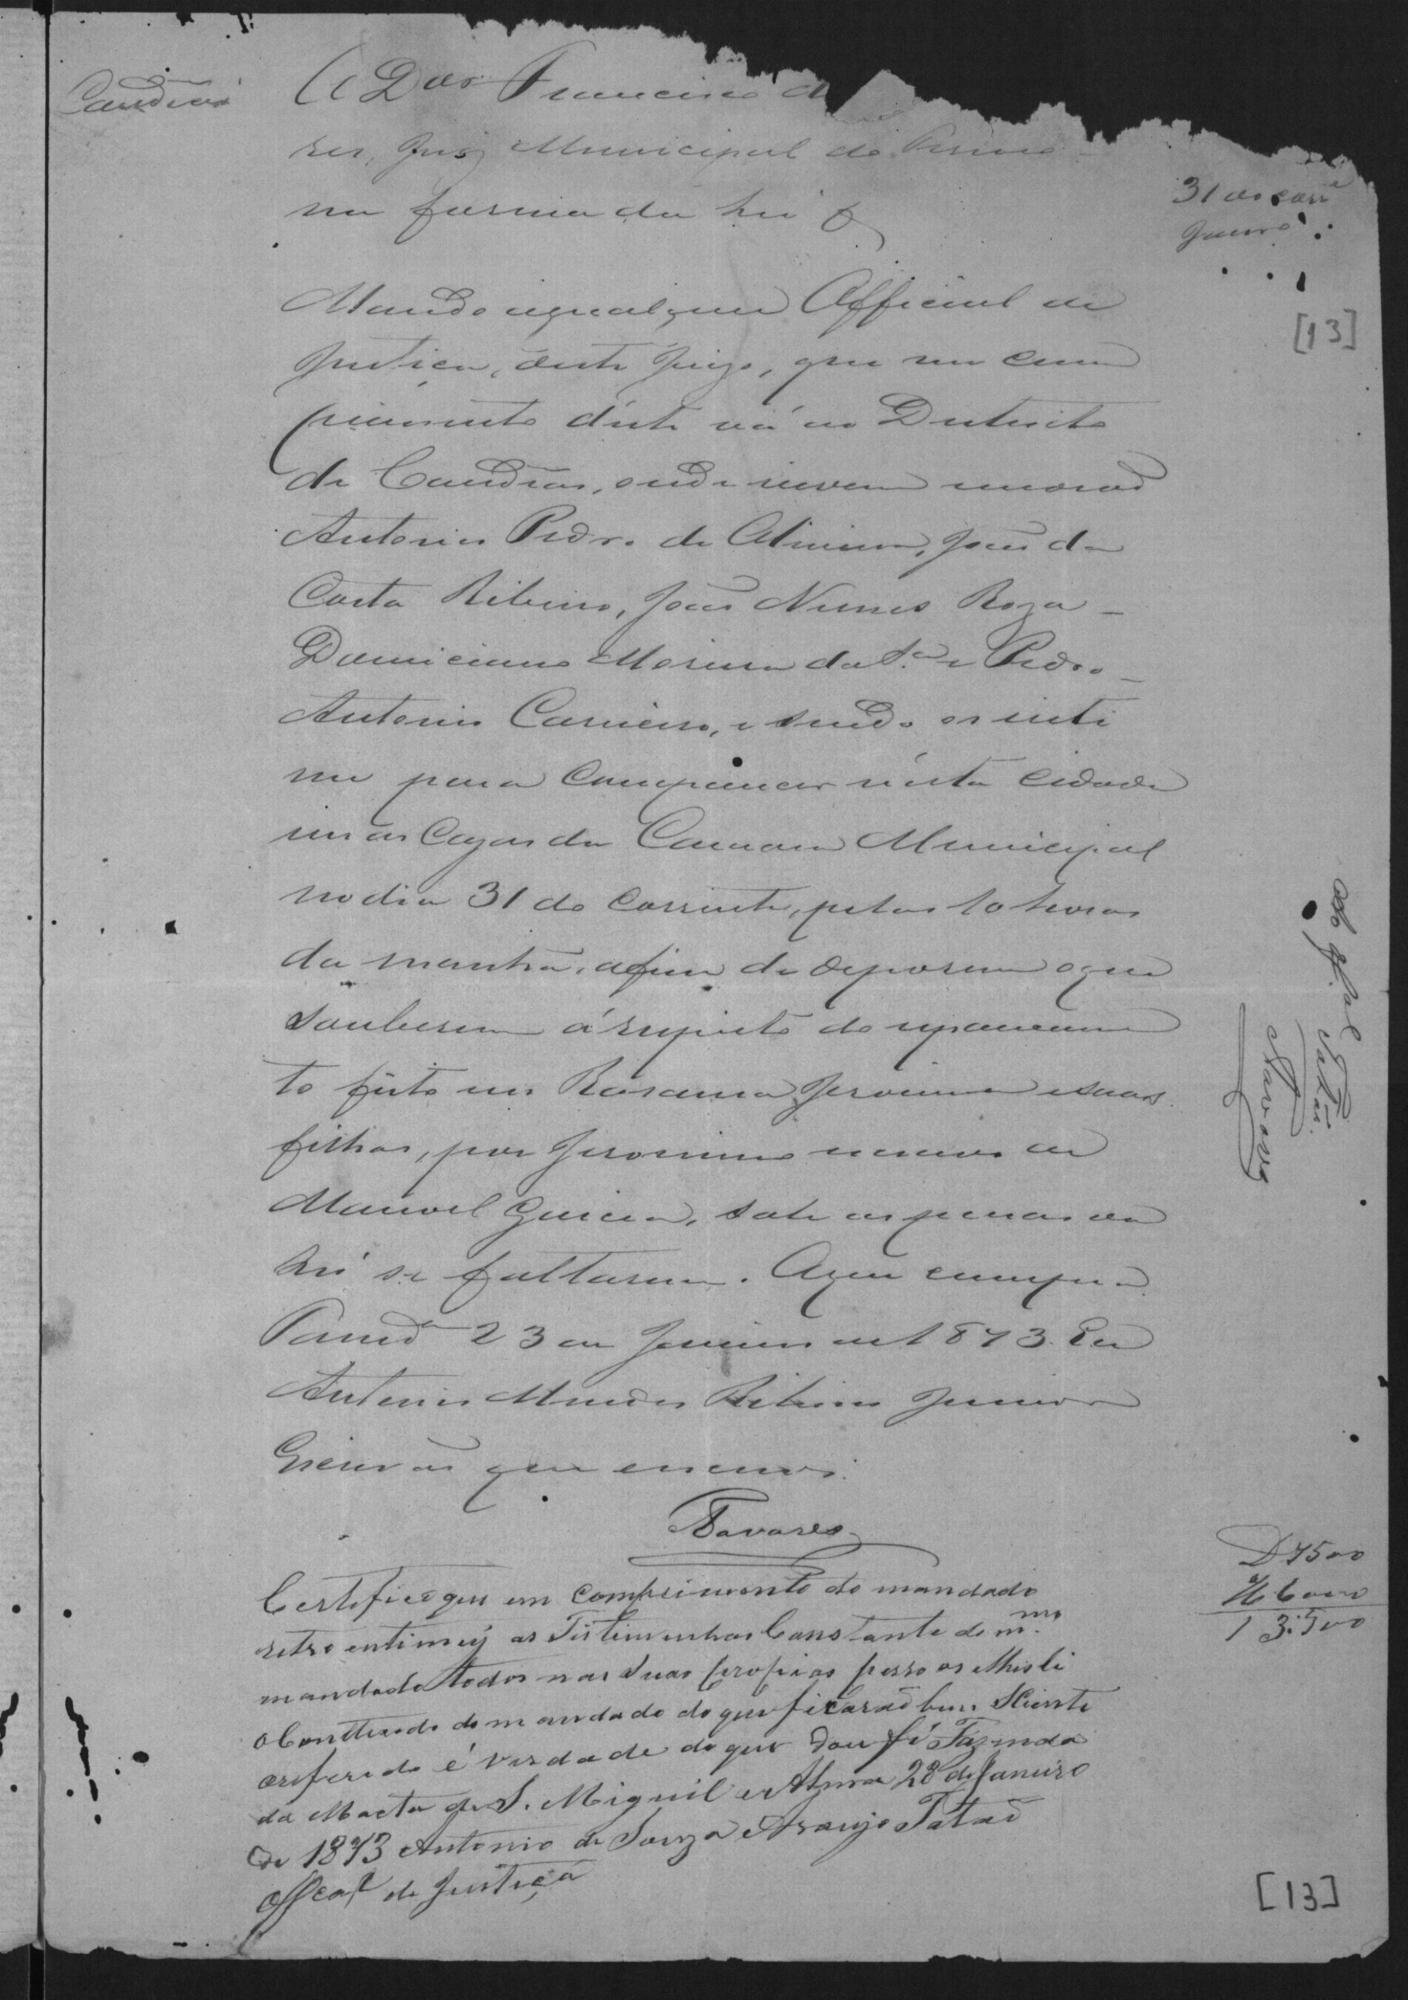 Candeias
O Dor Francisco
res, Juiz Municipal do Termo
na forma da Lei &
31 do corre
Janro
Mando a qualquer Official de
[13]
Justiça, deste Juizo, que em cum
primento déste vá ao Destricto
de Candeias, onde servem
Antonio Pedro de Oliveira, João da
Costa Ribeiro, João Nunes Roza
Domiciano Moreira da Sa. e Pedro
Antonio Carneiro, e sendo os inti
me para comparecer nésta cidade
nas Cazas da Camara Municipal
no dia 31 do corrente, pelas 10 horas
da manhã, afim de deporem o que
souberem á respeito do espancamen
to feito em Rosaura Jeronima e suas
filhas, por Jeronimo
Manoel Garcia, sob as penas da
Lei se faltarem. O que cumpra
23 de Janeiro de 1873. Eu
Antonio Mendes Ribeiro Junior
Escrivão que escrevi.
Tavares
Ao Offal
Tatão.
Tavares
Certifico que em comprimento do mandado
retro entimey as Testimunhas Constante do mmo.
mandado todos nas suas propias pessoas
o Contheudo do mandado do que ficarão bem Siente
o referido é verdade do que dou fé Fazenda
da Matta de S. Miguil e Alma 28 de Janeiro
de 1873 Antonio de Souza e Araujo Tatão
Offcal de Justiça
D 7500
6000
13:500
[13]